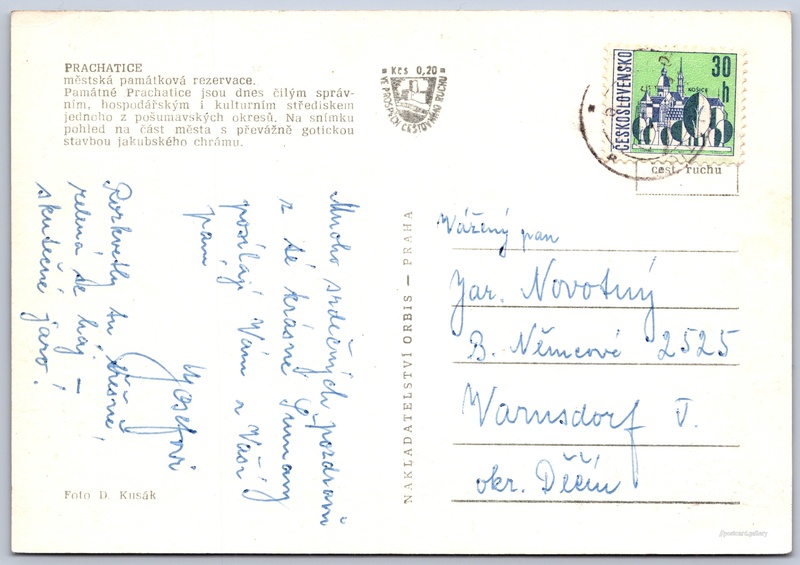 PRACHATICE
městská památková rezervace.
Památné Prachatice jsou dnes čilým správ-
ním, hospodářským i kulturním střediskem
jednoho z pošumavských okresů. Na snímku
pohled na část města s převážně gotickou
stavbou jakubského chrámu.
Kčs 0,20
VE PROSPĚCH CESTOVNÍHO RUCHU
ČESKOSLOVENSKO
30
h
KOŠICE
cest. ruchu
Mnoho srdečných pozdravů
z té krásné Šumavy
posílají Vám a Vaší
paní
Josefovi
Rozkvetly tu třešně,
zelená se háj –
skutečné jaro!
NAKLADATELSTVÍ ORBIS – PRAHA
Vážený pan
Jar. Novotný
B. Němcové 2525
Warnsdorf V.
okr. Děčín
Foto D. Kusák